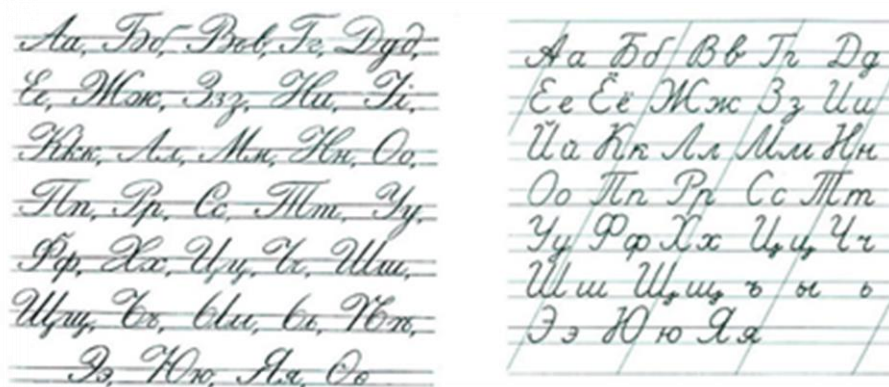 Аа, Бб, Ввв, Гг, Ддд,
Ее, Жж, Ззз, Ии, Іі,
Ккк, Лл, Мм, Нн, Оо,
Пп, Рр, Сс, Тт, Уу,
Фф, Хх, Цц, Чч, Шш,
Щщ, Ъъ, Ыы, Ьь, Ѣѣ,
Ээ, Юю, Яя, Ѳѳ
Аа Бб Вв Гг Дд
Ее Ёё Жж Зз Ии
Йй Кк Лл Мм Нн
Оо Пп Рр Сс Тт
Уу Фф Хх Цц Чч
Шш Щщ ъ ы ь
Ээ Юю Яя